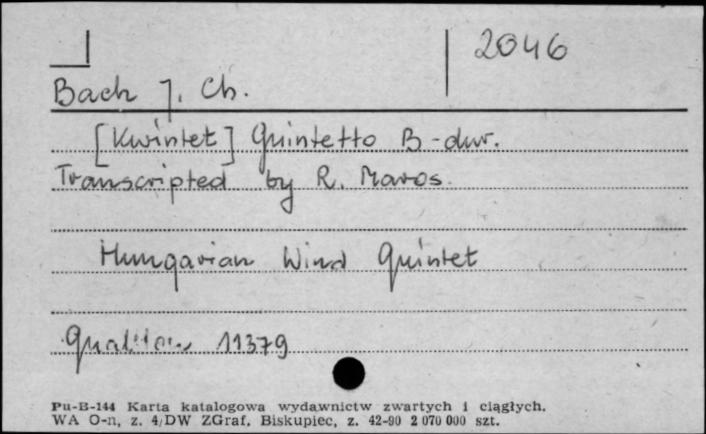 2046
Bach J. Ch.
[Kwintet] Quintetto B-dur.
Transcripted by R. Maros.
Hungarian Wind Quintet
Qualiton 11379
Pu-B-144 Karta katalogowa wydawnictw zwartych i ciągłych.
WA O-n, z. 4/DW ZGraf, Biskupiec, z. 42-90 2 070 000 szt.